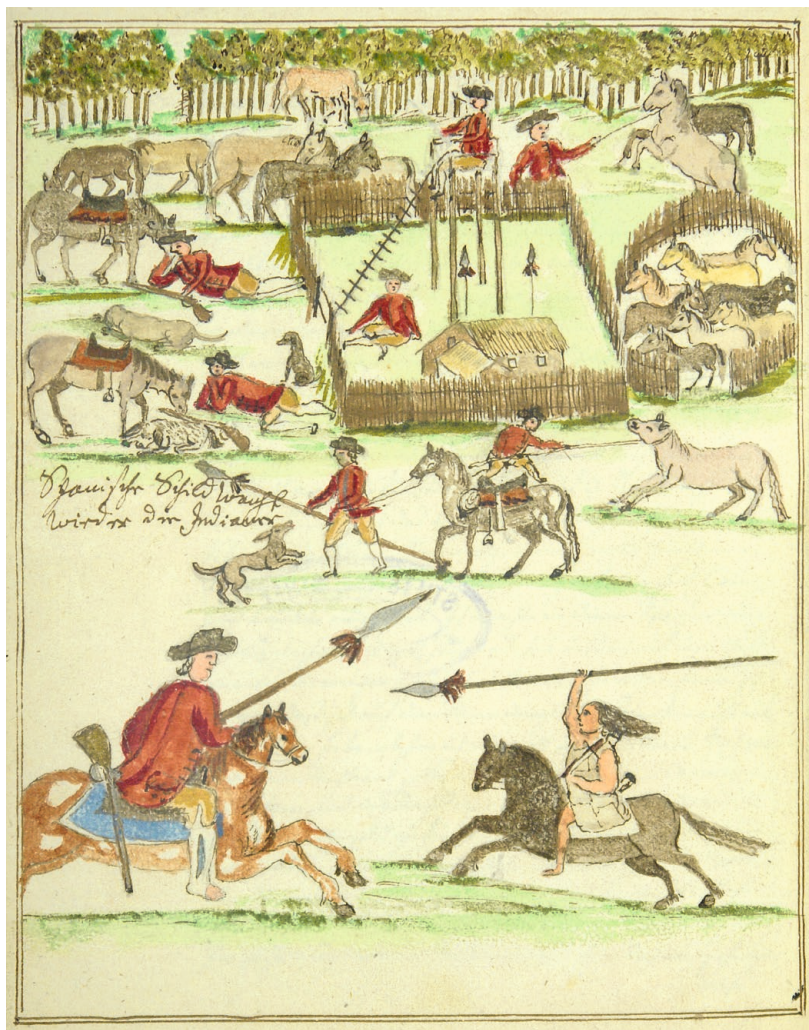 Spanische Schildwacht
wieder die Indianer